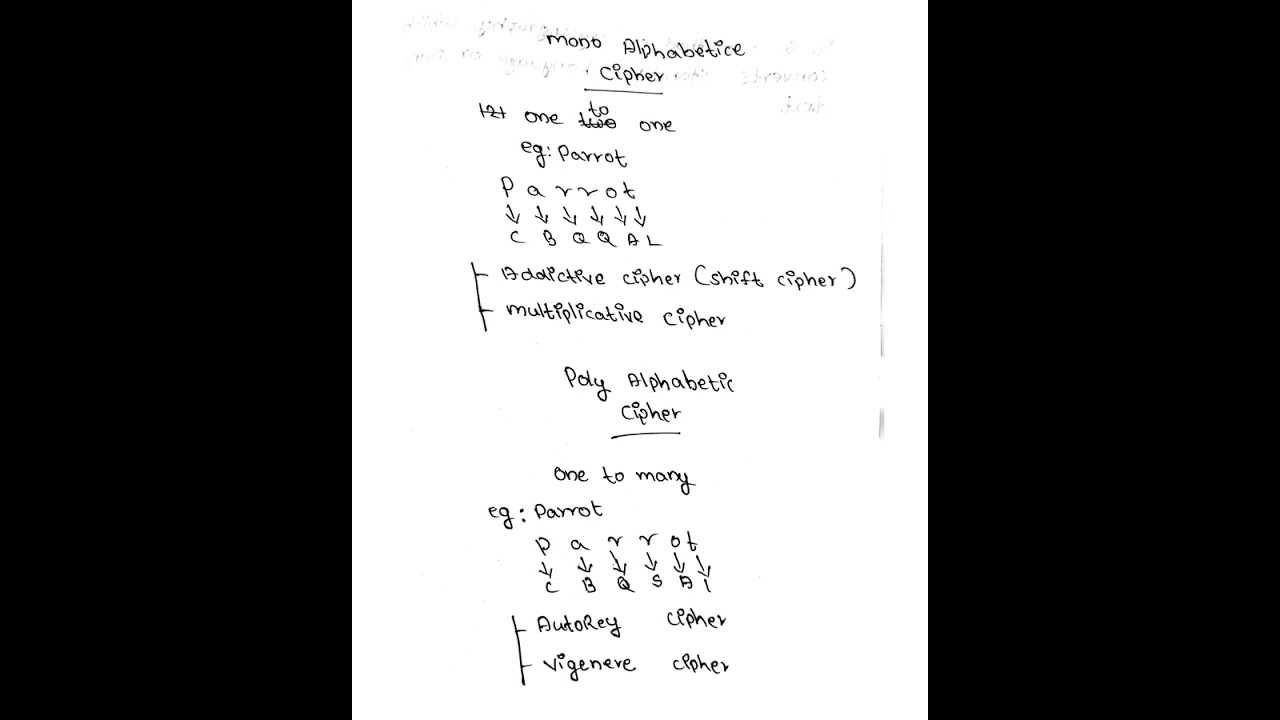 mono Alphabetice
cipher
one to one
eg: Parrot
P a r r o t
↓ ↓ ↓ ↓ ↓ ↓
C B Q Q A L
Addictive cipher (shift cipher)
multiplicative cipher
Poly Alphabetic
cipher
one to many
eg: Parrot
P a r r o t
↓ ↓ ↓ ↓ ↓ ↓
C B Q S A
AutoKey cipher
vigenere cipher